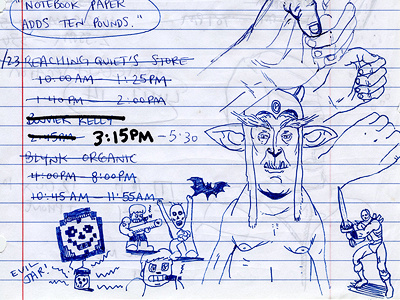 "NOTEBOOK PAPER
ADDS TEN POUNDS."
1/23 REACHING QUILT'S STORE
10:00AM - 11:25PM
1:40PM - 2:00PM
BOUVIER KELLY
2:45PM 3:15PM - 5:30
BLINK ORGANIC
4:00PM 8:00PM
10:45AM - 11:55AM
EVIL
JAR!